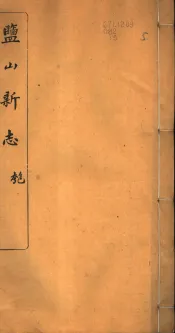 鹽山新志
匏
5